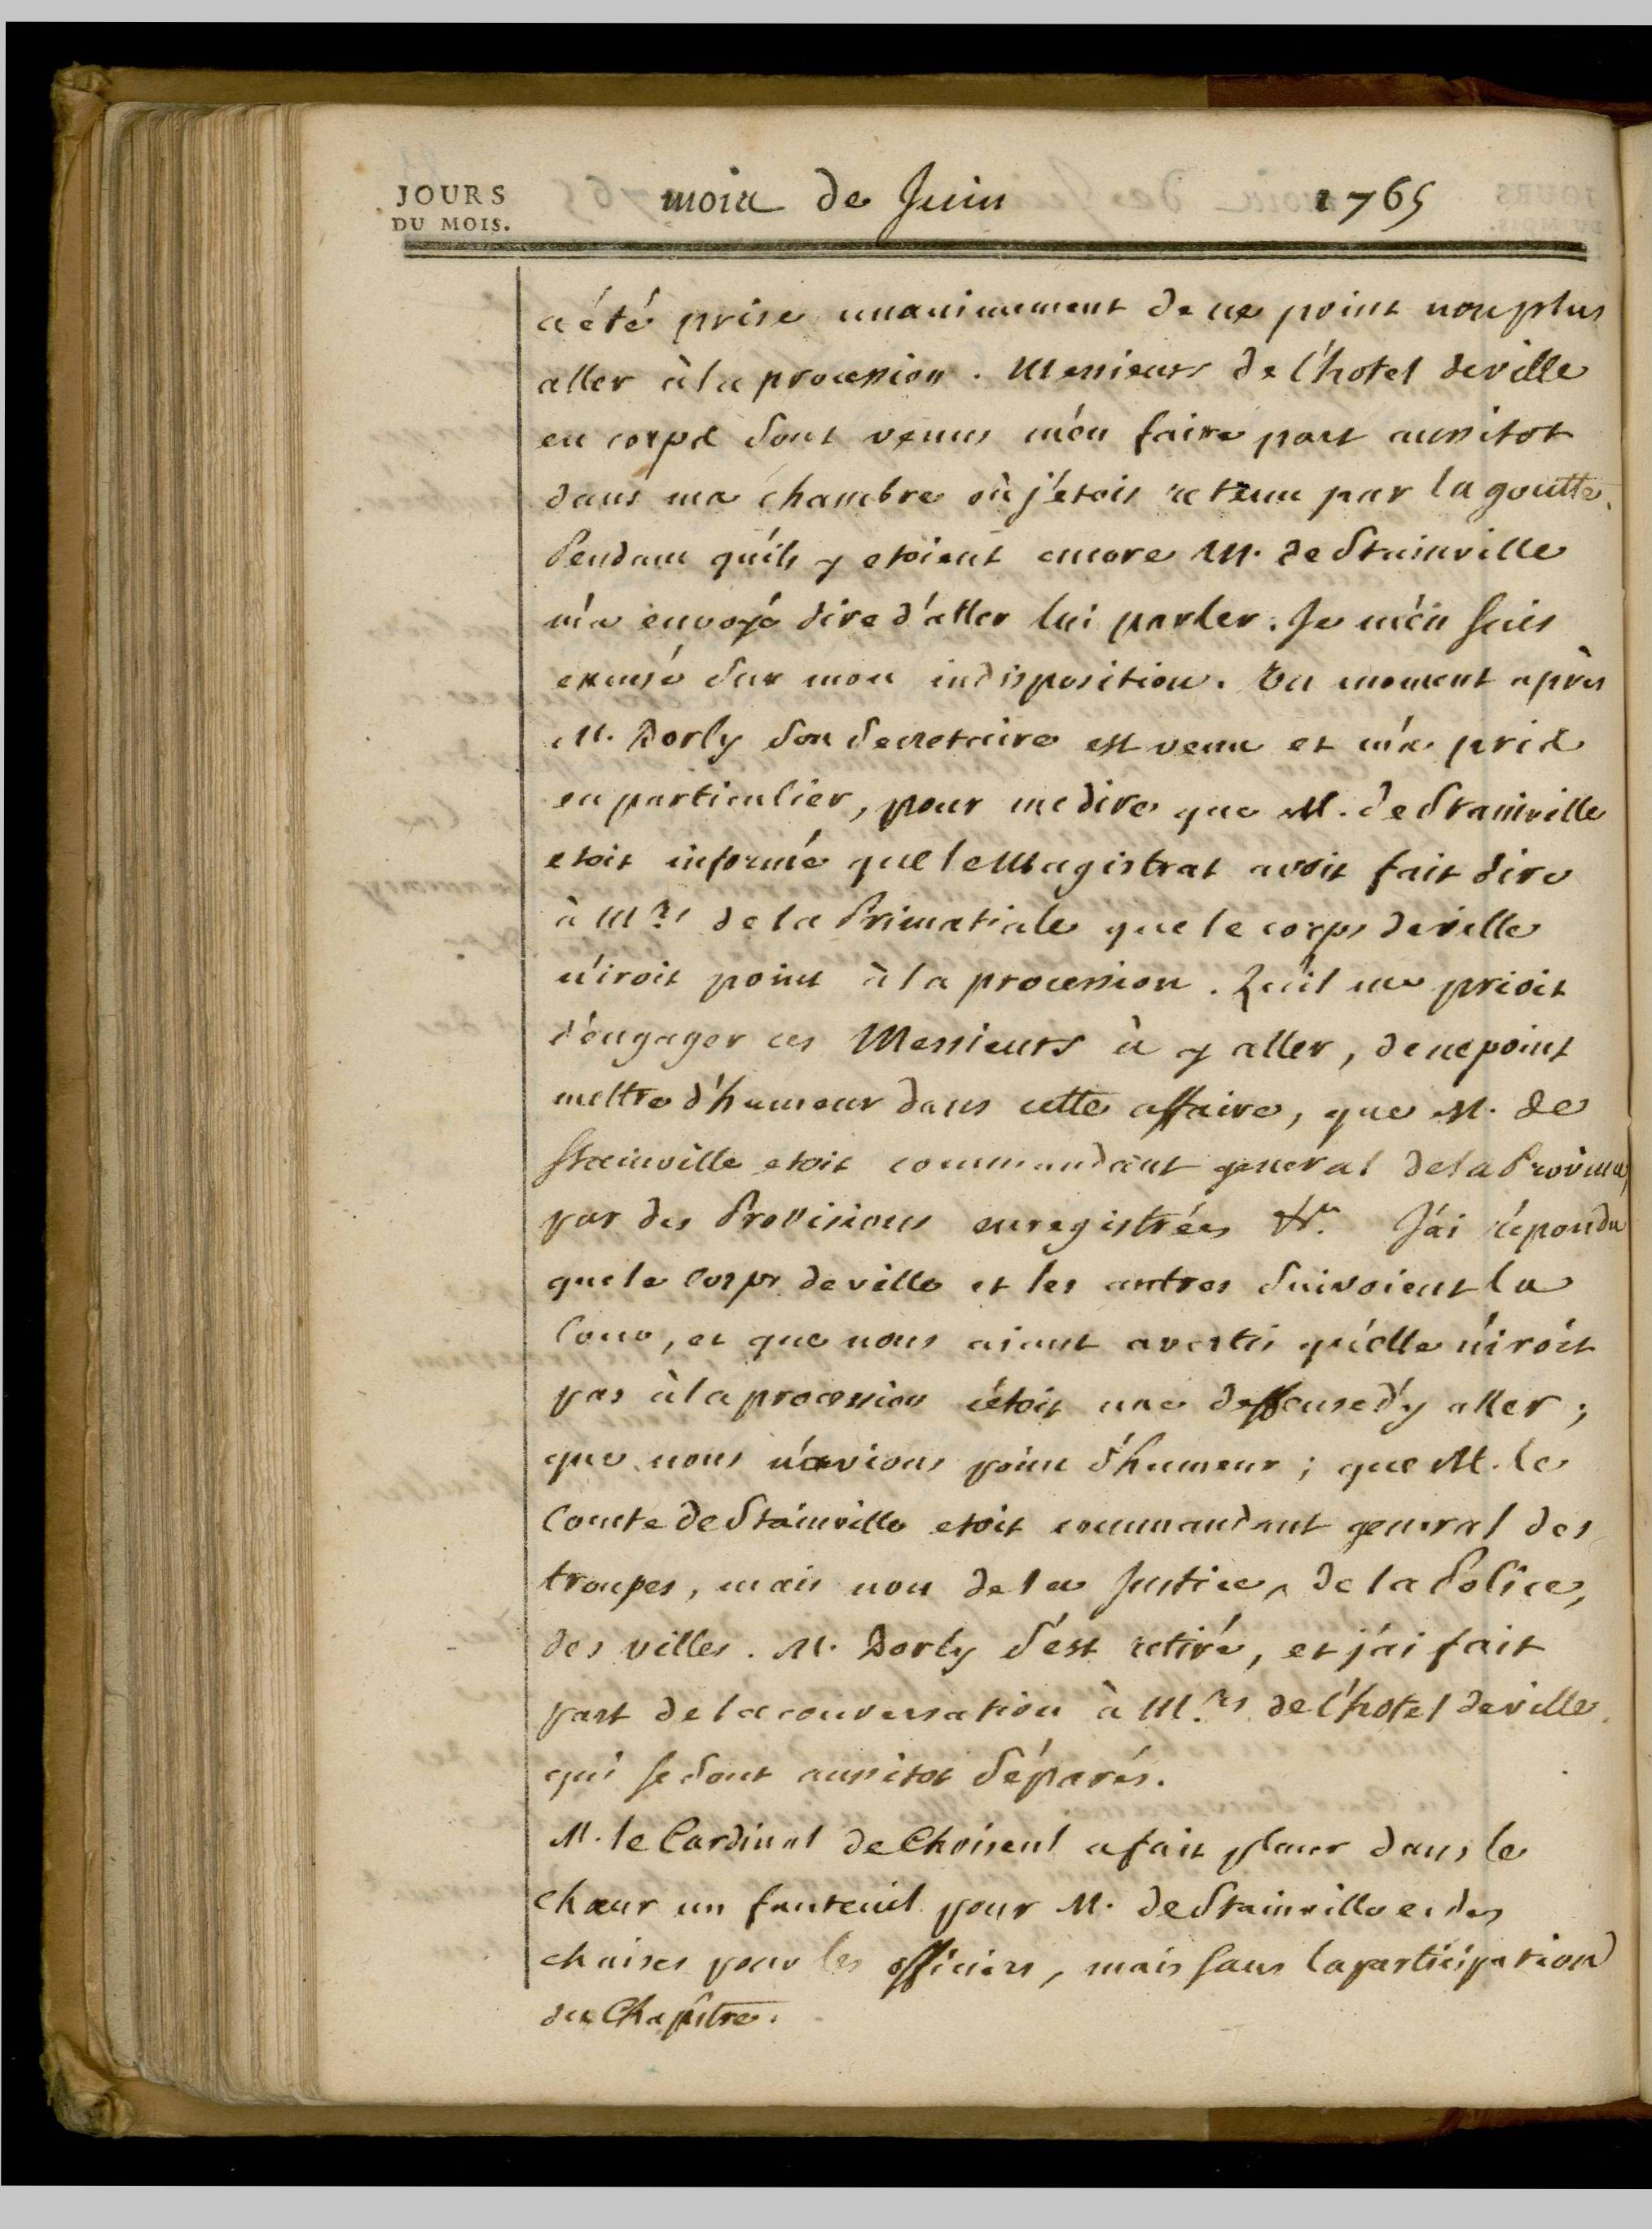 JOURS
DU MOIS.
mois de Juin 1765
a été prise unanimement de ne point non plus
aller à la procession. Messieurs de l'hotel de ville
en corps sont venus m'en faire part aussitot
dans ma chambre où j'étois retenu par la goutte.
Pendant qu'ils y etoient encore M. de Stainville
m'a envoyé dire d'aller lui parler. Je m'en suis
excusé sur mon indisposition. Un moment après
M. Dorly son secretaire est venu et m'a pris
en particulier, pour me dire que M. de Stainville
etoit informé que le Magistrat avoit fait dire
à Mrs de la Primatiale que le corps de ville
n'iroit point à la procession. Qu'il me prioit
d'engager ces Messieurs à y aller, de ne point
mettre d'humeur dans cette affaire, que M. de
Stainville etoit commandant general de la Province,
par des Provisions enregistrées &c. J'ai répondu
que le Corps de ville et les autres suivoient la
Cour, et que nous aiant avertis qu'elle n'iroit
pas à la procession c'étoit une deffense d'y aller;
que nous n'avions point d'humeur; que M. le
Comte de Stainville etoit commandant general des
troupes, mais non de la Justice, de la Police,
des villes. M. Dorly s'est retiré, et j'ai fait
part de la conversation à Mrs de l'hotel de ville
qui se sont aussitot séparés.
M. le Cardinal de Choiseul a fait placer dans le
chœur un fauteuil pour M. de Stainville et des
chaises pour les officiers, mais sans la participation
du Chapitre.